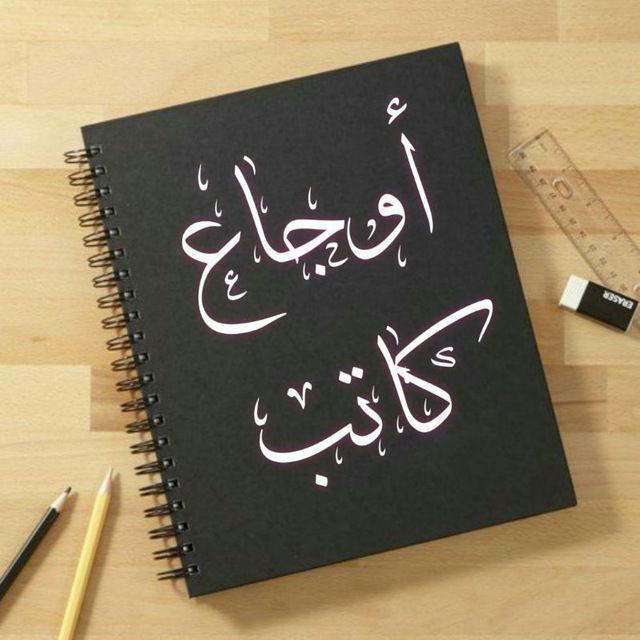 أوجاع
كاتب
ERASER